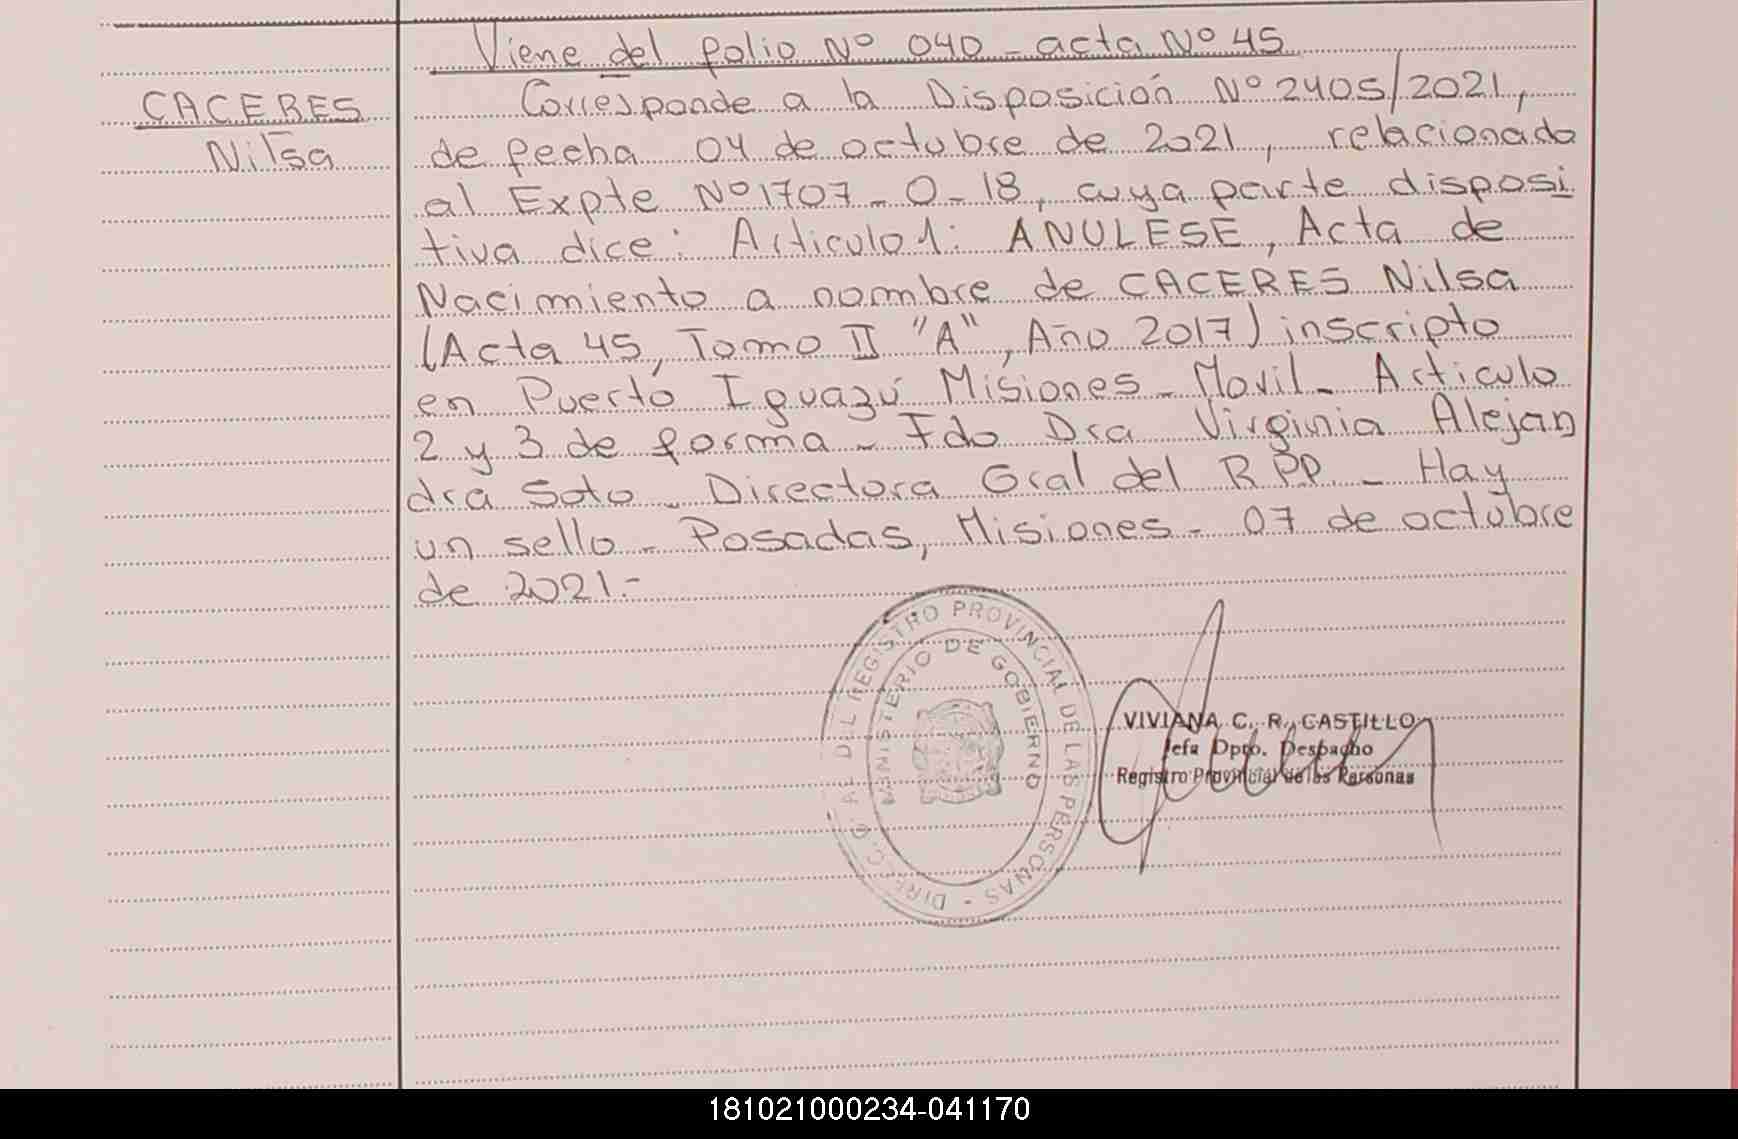 Viene del folio Nº 040 - acta Nº 45
CACERES
Nilsa
Corresponde a la Disposición Nº 2405/2021,
de fecha 04 de octubre de 2021, relacionada
al Expte Nº 1707 - O - 18, cuya parte disposi
tiva dice: Articulo 1: ANULESE, Acta de
Nacimiento a nombre de CACERES Nilsa
(Acta 45, Tomo II "A", Año 2017) inscripto
en Puerto Iguazú Misiones - Movil - Articulo
2 y 3 de forma - Fdo Dra Virginia Alejan
dra Soto - Directora Gral del RPP - Hay
un sello - Posadas, Misiones - 07 de octubre
de 2021 -
DIREC. G. AL DEL REGISTRO PROVINCIAL DE LAS PERSONAS -
MINISTERIO DE GOBIERNO
VIVIANA C. R. CASTILLO
Jefa Dpto. Despacho
Registro Provincial de las Personas
181021000234-041170